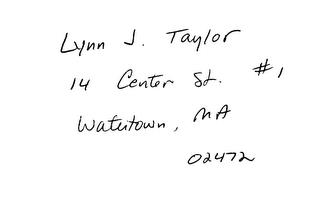 Lynn J. Taylor
14 Center St. #1
Watertown, MA
02472